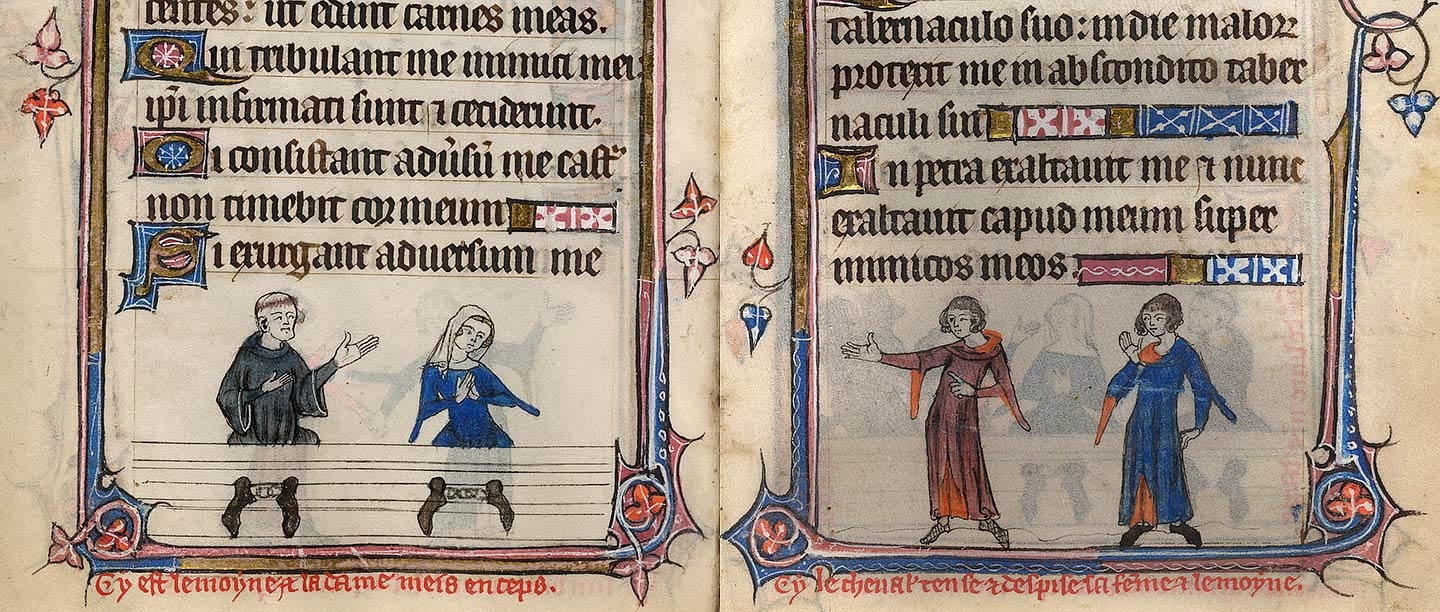 centes: ut edant carnes meas.
Qui tribulant me inimici mei
ip̄i infirmati sunt ⁊ ceciderunt.
Si consistant adũsũ me castꝰ
non timebit cor meum
Si exurgant aduersum me
Cy est le moyne ⁊ la dame meis en ceps.
tabernaculo suo: in die maloꝝ
protexit me in abscondito taber
naculi sui
In petra exaltauit me ⁊ nunc
exaltauit capud meum super
inimicos meos.
Cy le cheualꝰ tense ⁊ despise sa feme ⁊ le moyne.